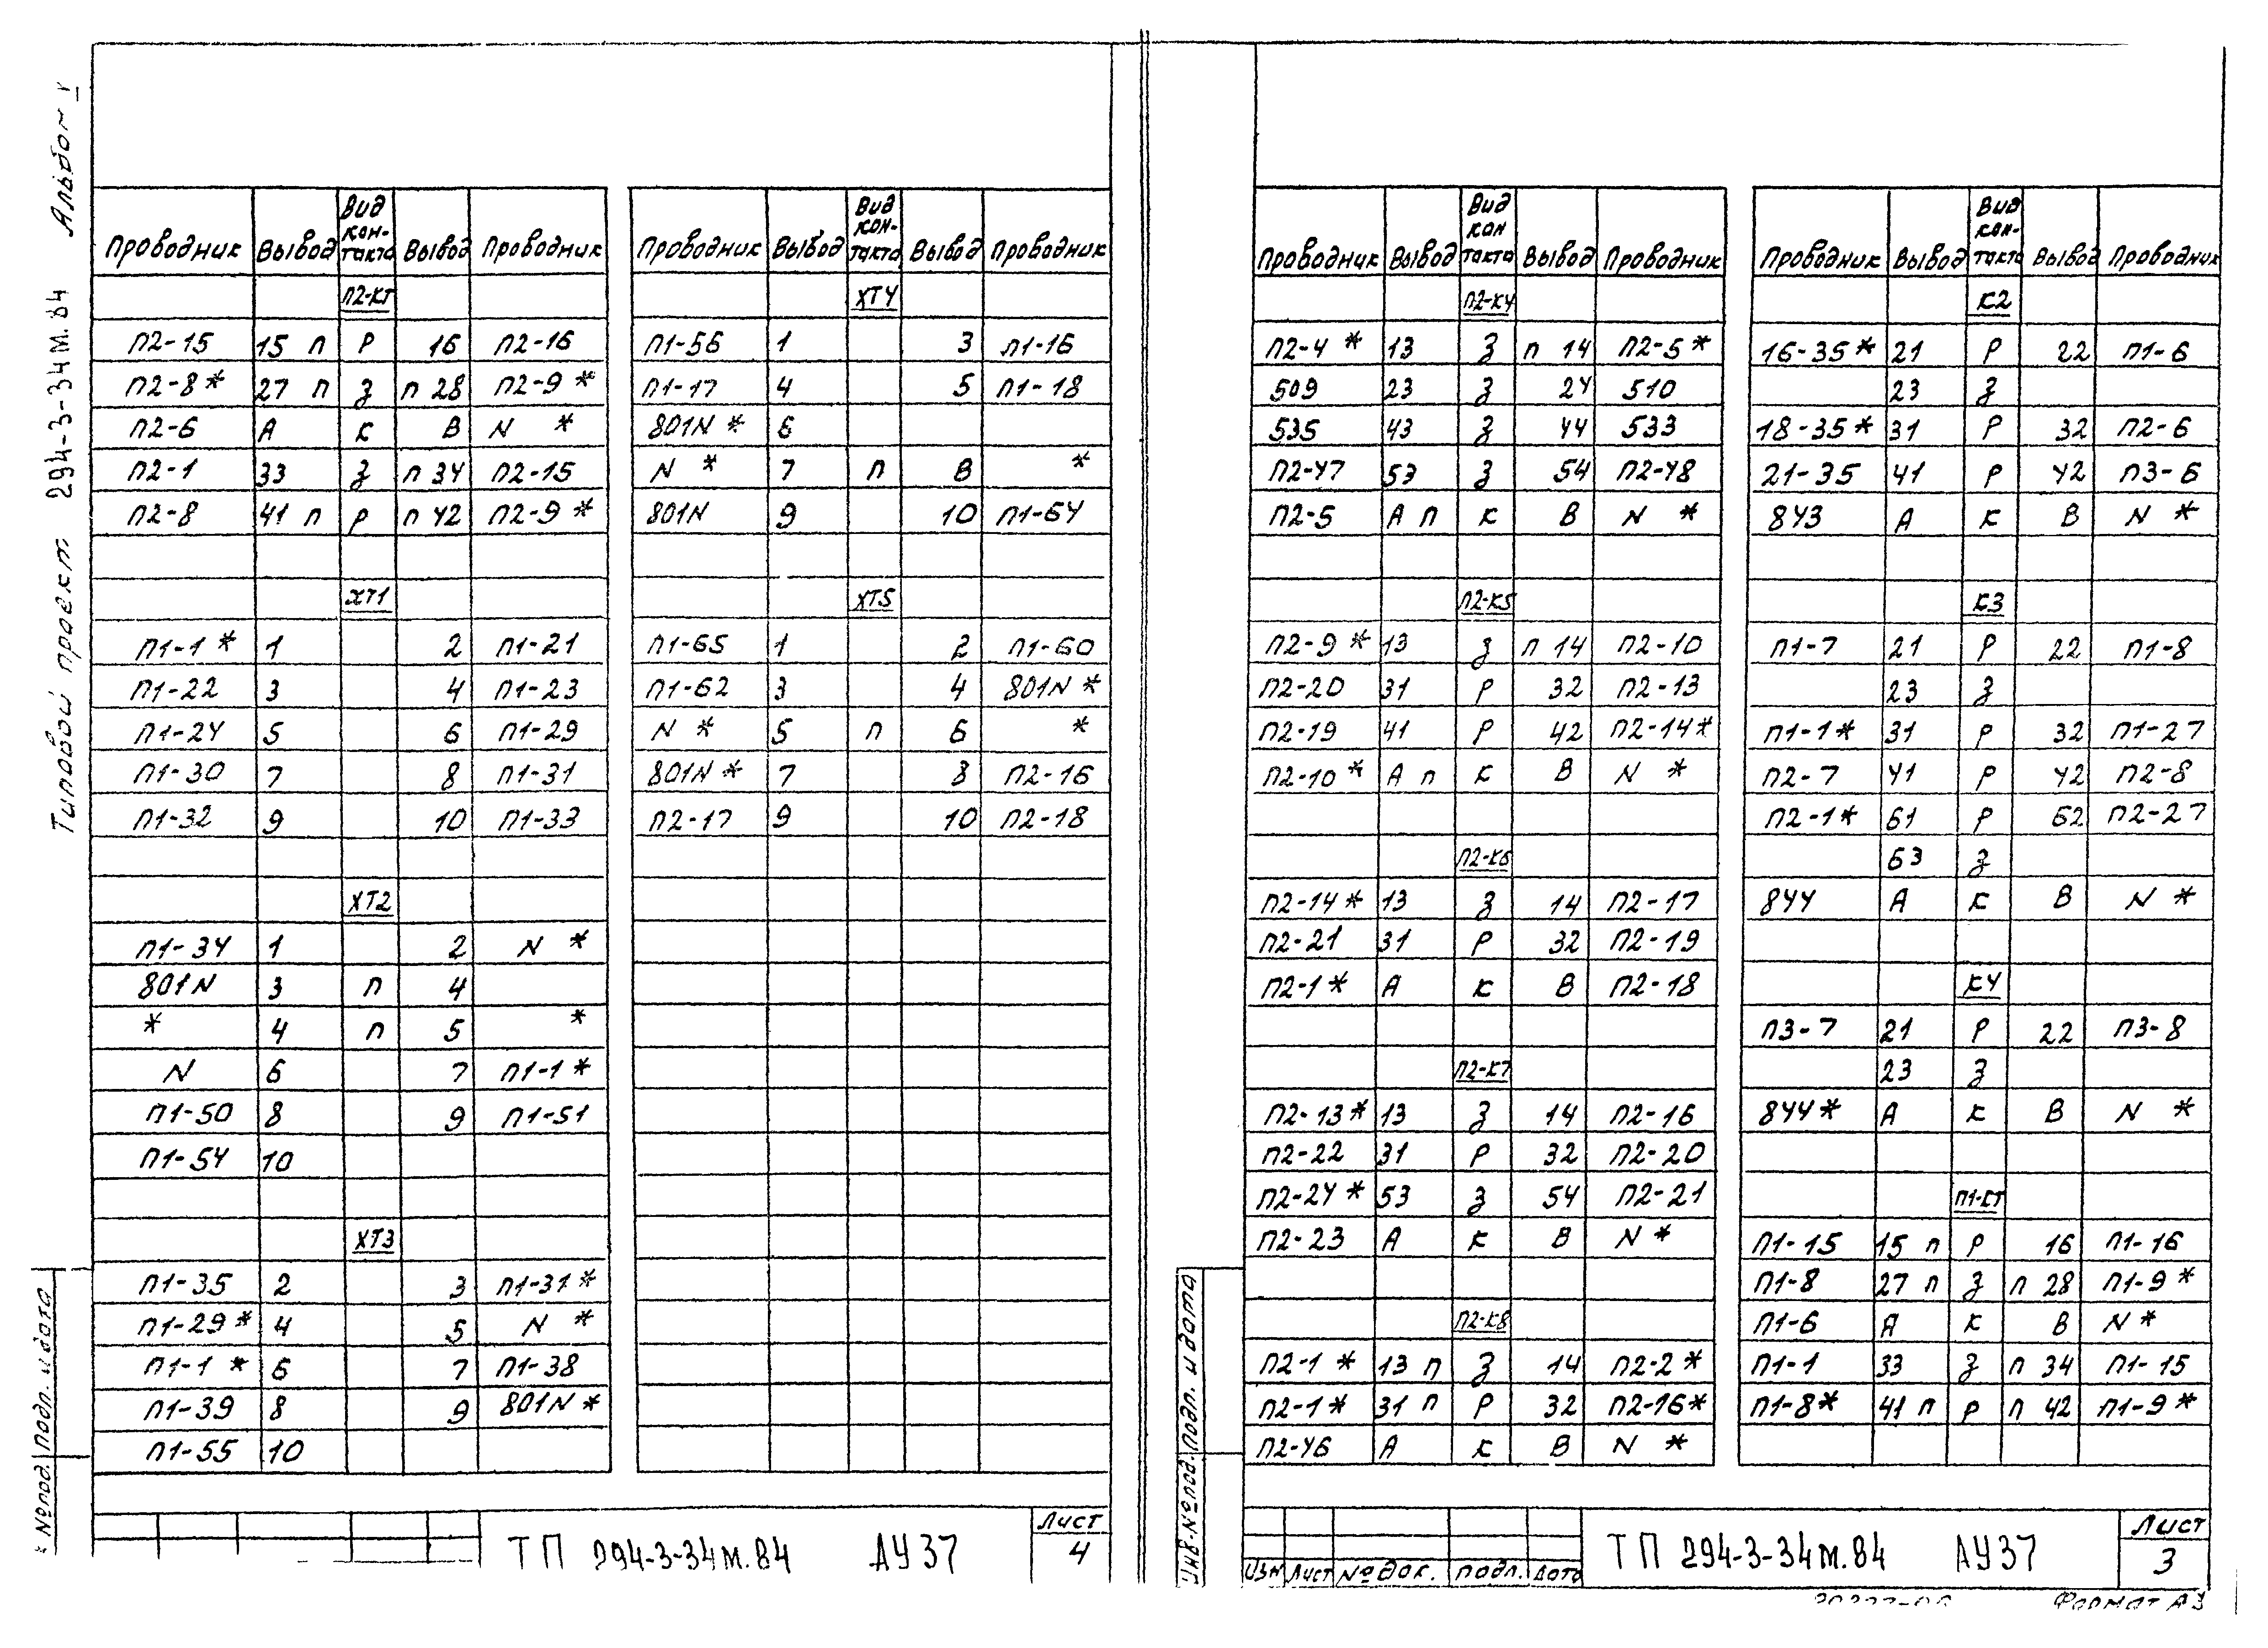 Типовой проект 294-3-34М.84 Альбом V
Проводник Вывод Вид кон-такта Вывод Проводник
П2-КТ
П2-15 15 П Р 16 П2-16
П2-8* 27 П З П 28 П2-9*
П2-6 А К В N *
П2-1 33 З П 34 П2-15
П2-8 41 П Р П 42 П2-9*
ХТ1
П1-1* 1 2 П1-21
П1-22 3 4 П1-23
П1-24 5 6 П1-29
П1-30 7 8 П1-31
П1-32 9 10 П1-33
ХТ2
П1-34 1 2 N *
801N 3 П 4
* 4 П 5 *
N 6 7 П1-1*
П1-50 8 9 П1-51
П1-54 10
ХТ3
П1-35 2 3 П1-31*
П1-29* 4 5 N *
П1-1 * 6 7 П1-38
П1-39 8 9 801N*
П1-55 10
Проводник Вывод Вид кон-такта Вывод Проводник
ХТ4
П1-56 1 3 П1-16
П1-17 4 5 П1-18
801N* 6
N * 7 П 8 *
801N 9 10 П1-64
ХТ5
П1-65 1 2 П1-60
П1-62 3 4 801N*
N * 5 П 6 *
801N* 7 8 П2-16
П2-17 9 10 П2-18
№ подл. Подп. и дата
ТП 294-3-34М.84 АУ37
Лист
4
Проводник Вывод Вид кон такта Вывод Проводник
П2-К4
П2-4 * 13 З П 14 П2-5*
509 23 З 24 510
535 43 З 44 533
П2-47 53 З 54 П2-48
П2-5 А П К В N *
П2-К5
П2-9* 13 З П 14 П2-10
П2-20 31 Р 32 П2-13
П2-19 41 Р 42 П2-14*
П2-10* А П К В N *
П2-К6
П2-14* 13 З 14 П2-17
П2-21 31 Р 32 П2-19
П2-1* А К В П2-18
П2-К7
П2-13* 13 З 14 П2-16
П2-22 31 Р 32 П2-20
П2-24* 53 З 54 П2-21
П2-23 А К В N *
П2-К8
П2-1 * 13 П З 14 П2-2*
П2-1* 31 П Р 32 П2-16*
П2-46 А К В N *
Проводник Вывод Вид кон-такта Вывод Проводник
К2
16-35* 21 Р 22 П1-6
23 З
18-35* 31 Р 32 П2-6
21-35 41 Р 42 П3-6
843 А К В N *
К3
П1-7 21 Р 22 П1-8
23 З
П1-1* 31 Р 32 П1-27
П2-7 41 Р 42 П2-8
П2-1* 61 Р 62 П2-27
63 З
844 А К В N *
К4
П3-7 21 Р 22 П3-8
23 З
844* А К В N *
П1-КТ
П1-15 15 П Р 16 П1-16
П1-8 27 П З П 28 П1-9*
П1-6 А К В N*
П1-1 33 З П 34 П1-15
П1-8* 41 П Р П 42 П1-9*
Инв. № подл. Подп. и дата
Изм Лист № док. Подп. Дата
ТП 294-3-34М.84 АУ37
Лист
3
Формат А3